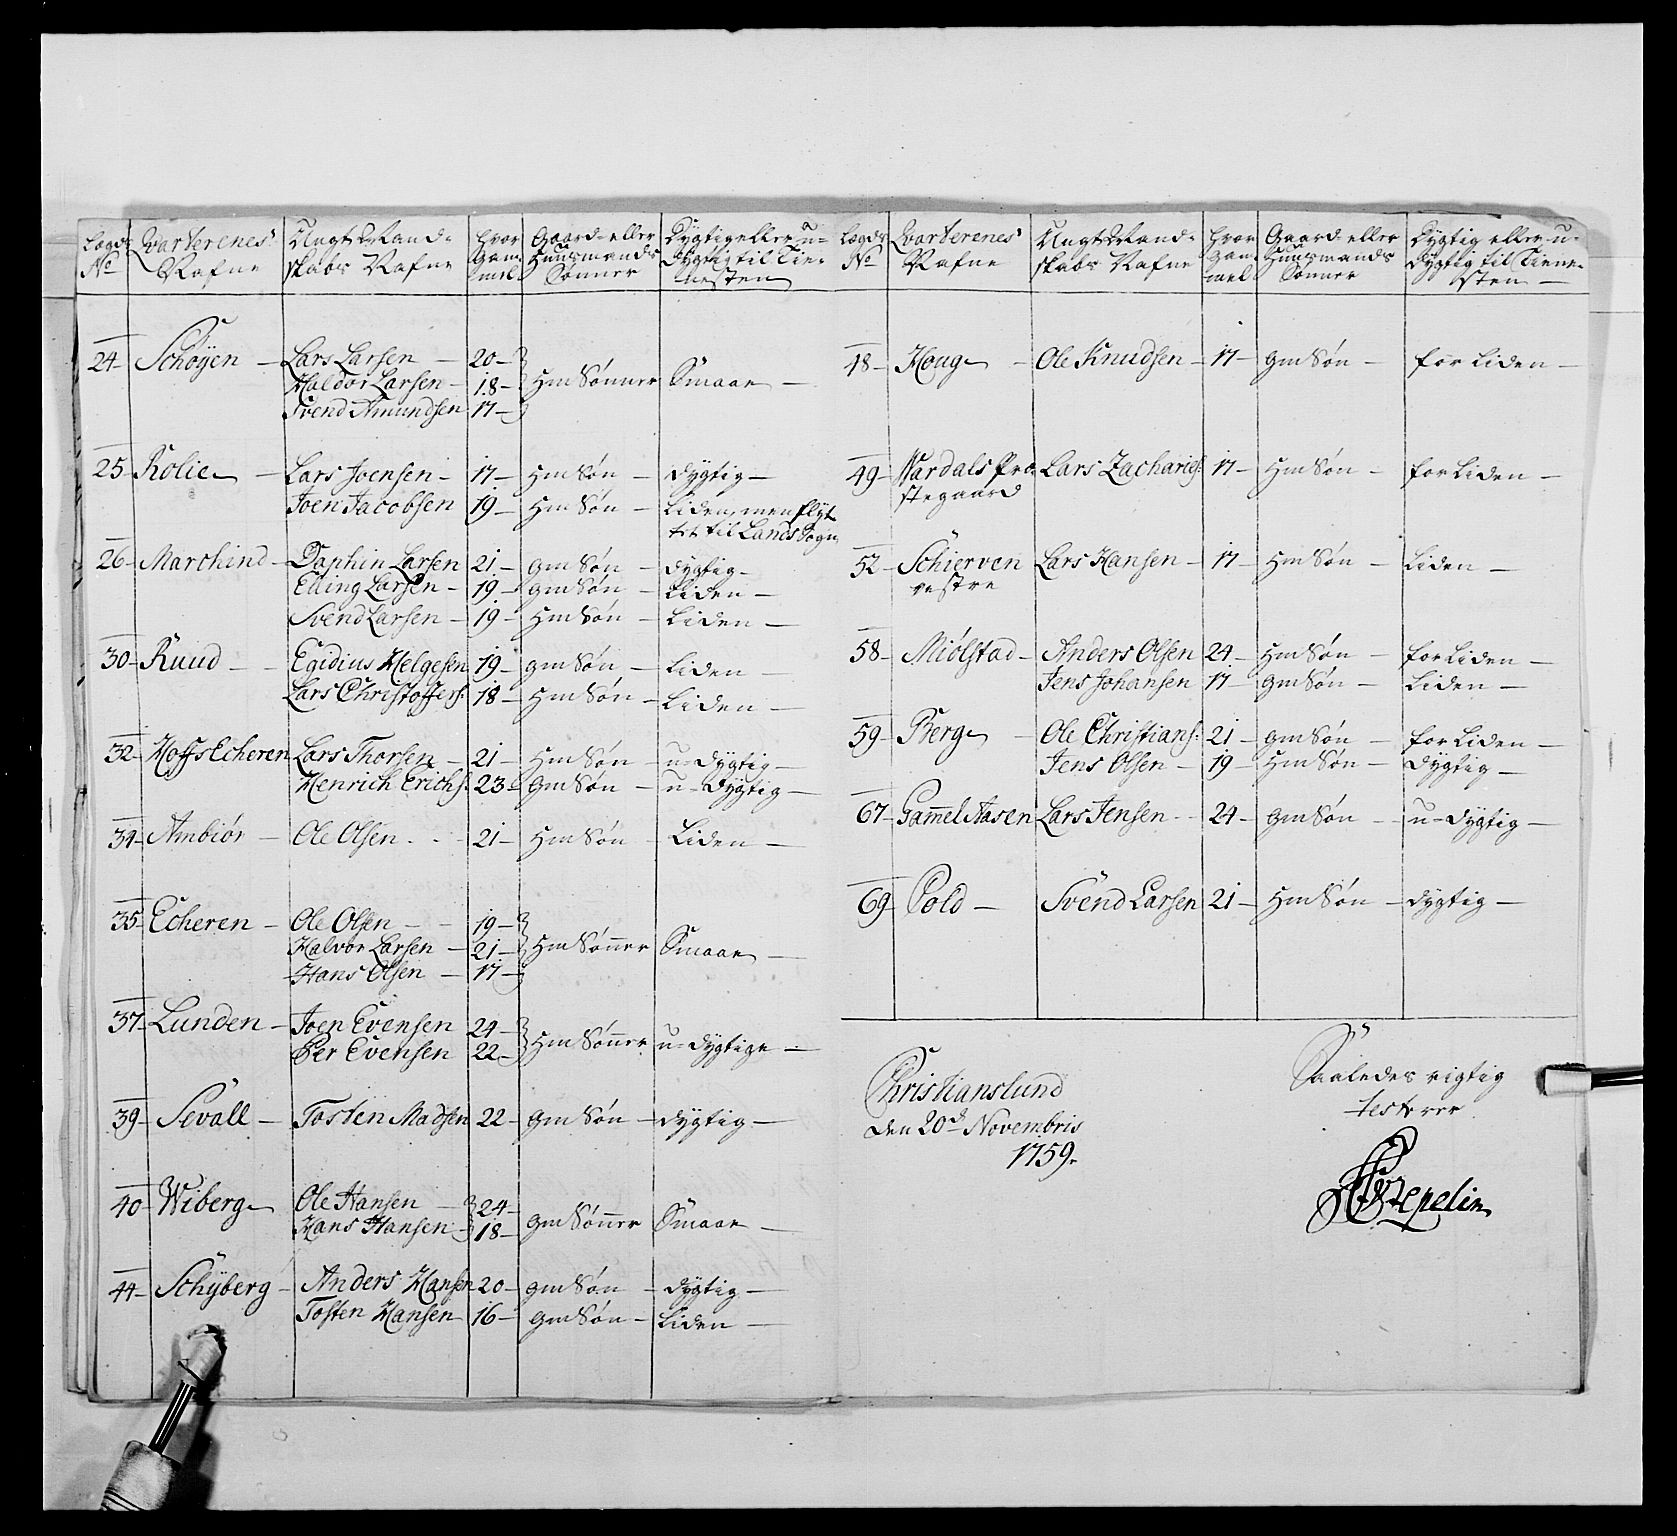 Lægds No | Qvarterenes Nafne | Ungt Mand- skabs Nafne | Hvor Gam- mel | Gaard- eller Huusmands Sønner | Dygtig eller u- dygtig til Tie- nesten
24 - Schøyen - Lars Larsen - 20 -
Haldor Larsen - 18 - Hm Sønner Smaae -
Svend Amundsen 17 -
25 - Kolie - Lars Joensen - 17 - Hm Søn - dygtig -
Joen Jacobsen 19 - Hm Søn - Liden, men flyt-
tet til Lands Sogn
26 - Marchind - Daphin Larsen 21 - Gm Søn - dygtig -
Elling Larsen - 19 - Gm Søn - Liden -
Svend Larsen - 19 - Hm Søn - Liden -
30 - Ruud - Egidius Helgesen 19 - Gm Søn - Liden -
Lars Christoffers: 18 - Hm Søn - Liden -
32 - Hoffs Echeren Lars Thorsen - 21 - Hm Søn - u-dygtig -
Henrich Erichs: 23 - Gm Søn - u-dygtig -
34 - Ambiør - Ole Olsen - 21 - Hm Søn - Liden -
35 - Echeren - Ole Olsen - 19 -
Halvor Larsen - 21 - Hm Sønner Smaae -
Hans Olsen - 17 -
37 - Lunden - Joen Evensen 24 -
Per Evensen 22 - Hm Sønner u-dygtige -
39 - Sevall - Tosten Madsen 22 - Gm Søn - dygtig -
40 - Wiberg - Ole Hansen - 24 -
Hans Hansen - 18 - Gm Sønner Smaae -
44 - Schyberg - Anders Hansen 20 - Gm Søn - dygtig -
Tosten Hansen 16 - Gm Søn - Liden -
Lægds No | Qvarterenes Nafne | Ungt Mand- skabs Nafne | Hvor Gam- mel | Gaard- eller Huusmands Sønner | Dygtig eller u- dygtig til Tiene- sten -
48 - Houg - Ole Knudsen - 17 - Gm Søn - for Liden -
49 - Wardals Pre- Lars Zacharies: 17 - Hm Søn - for Liden -
stegaard
52 - Schierven Lars Hansen - 17 - Hm Søn - Liden -
vestre
58 - Miølstad - Anders Olsen 24 - Hm Søn - for Liden -
Jens Johansen 17 - Gm Søn - Liden -
59 - Berg - Ole Christians: 21 - Gm Søn - for Liden -
Jens Olsen - 19 - Hm Søn - dygtig -
67 - Gammel Aasen Lars Jensen - 24 - Gm Søn - u-dygtig -
69 - Pold - Svend Larsen 21 - Hm Søn - dygtig -
Christianslund
den 20d Novembris
1759.
Saaledes rigtig
testerer
Zepelin